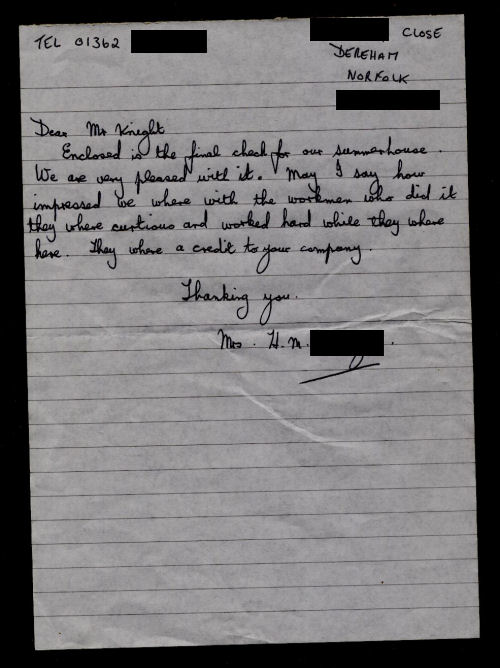 TEL 01362
CLOSE
DEREHAM
NORFOLK
Dear Mr Knight
Enclosed is the final check for our summerhouse.
We are very pleased with it. May I say how
impressed we where with the workmen who did it
they where curtious and worked hard while they where
here. They where a credit to your company.
Thanking you.
Mrs. H.M.